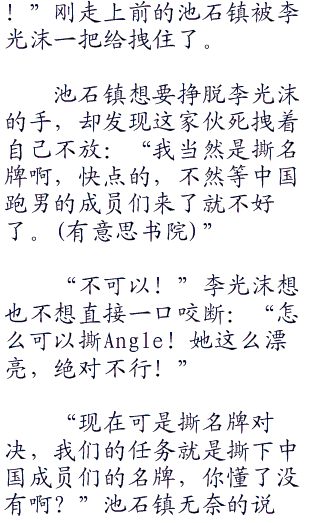 ！”刚走上前的池石镇被李
光沫一把给拽住了。
池石镇想要挣脱李光沫
的手，却发现这家伙死拽着
自己不放：“我当然是撕名
牌啊，快点的，不然等中国
跑男的成员们来了就不好
了。(有意思书院)”
“不可以！”李光沫想
也不想直接一口咬断：“怎
么可以撕Angle！她这么漂
亮，绝对不行！”
“现在可是撕名牌对
决，我们的任务就是撕下中
国成员们的名牌，你懂了没
有啊？”池石镇无奈的说